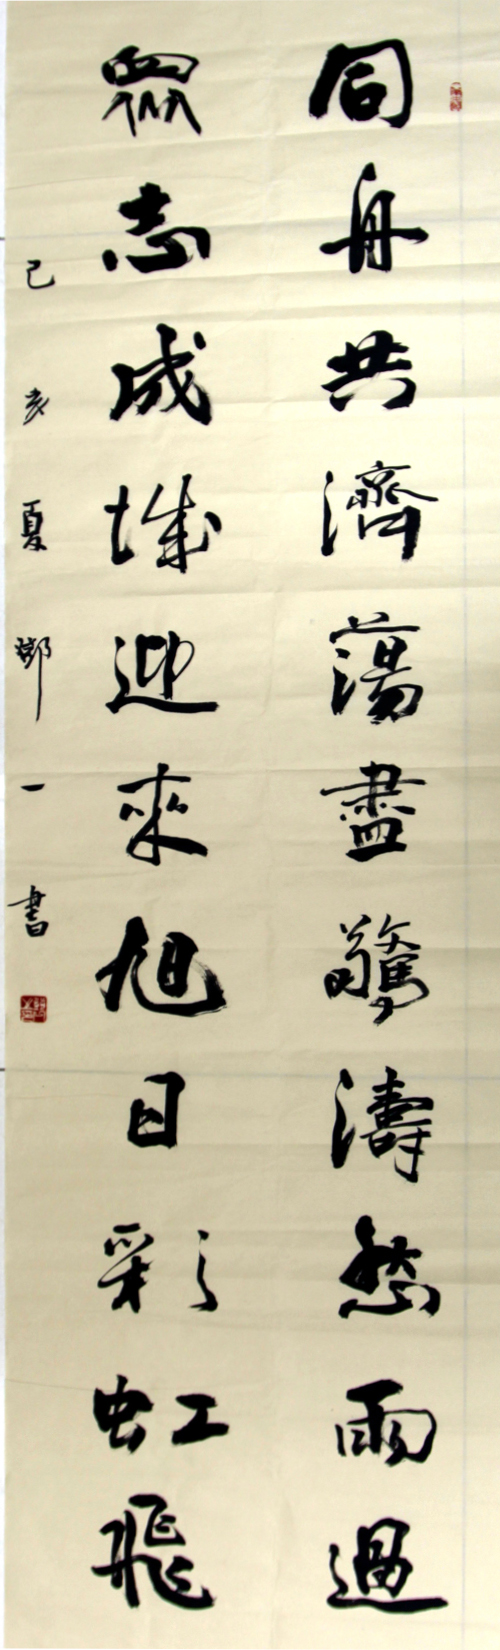 同舟共濟蕩盡驚濤愁雨過
眾志成城迎來旭日彩虹飛
己亥夏鄧一書